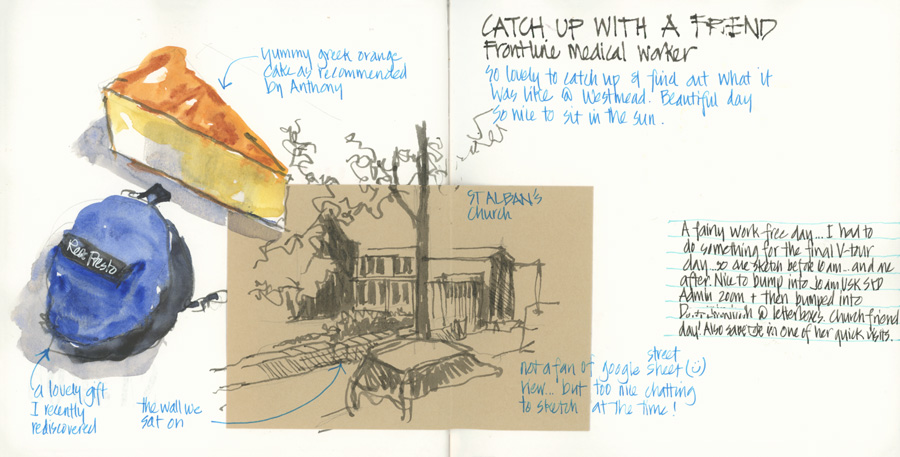 CATCH UP WITH A FRIEND
Frontline Medical Worker
So lovely to catch up & find out what it
was like @ Westmead. Beautiful day
so nice to sit in the sun.
yummy greek orange
cake as recommended
by Anthony
ST ALBAN'S
Church
Rose Presto
A fairly work free day... I had to
do something for the final V-tour
day... so one sketch before 10am... and one
after. Nice to bump into Jean, USK SYD
Admin zoom + then bumped into
@ letterboxes. Church friend
day! Also saw in one of her quick visits.
not a fan of google street sheet (☺)
view... but too nice chatting
to sketch at the time!
a lovely gift
I recently
rediscovered
the wall we
sat on